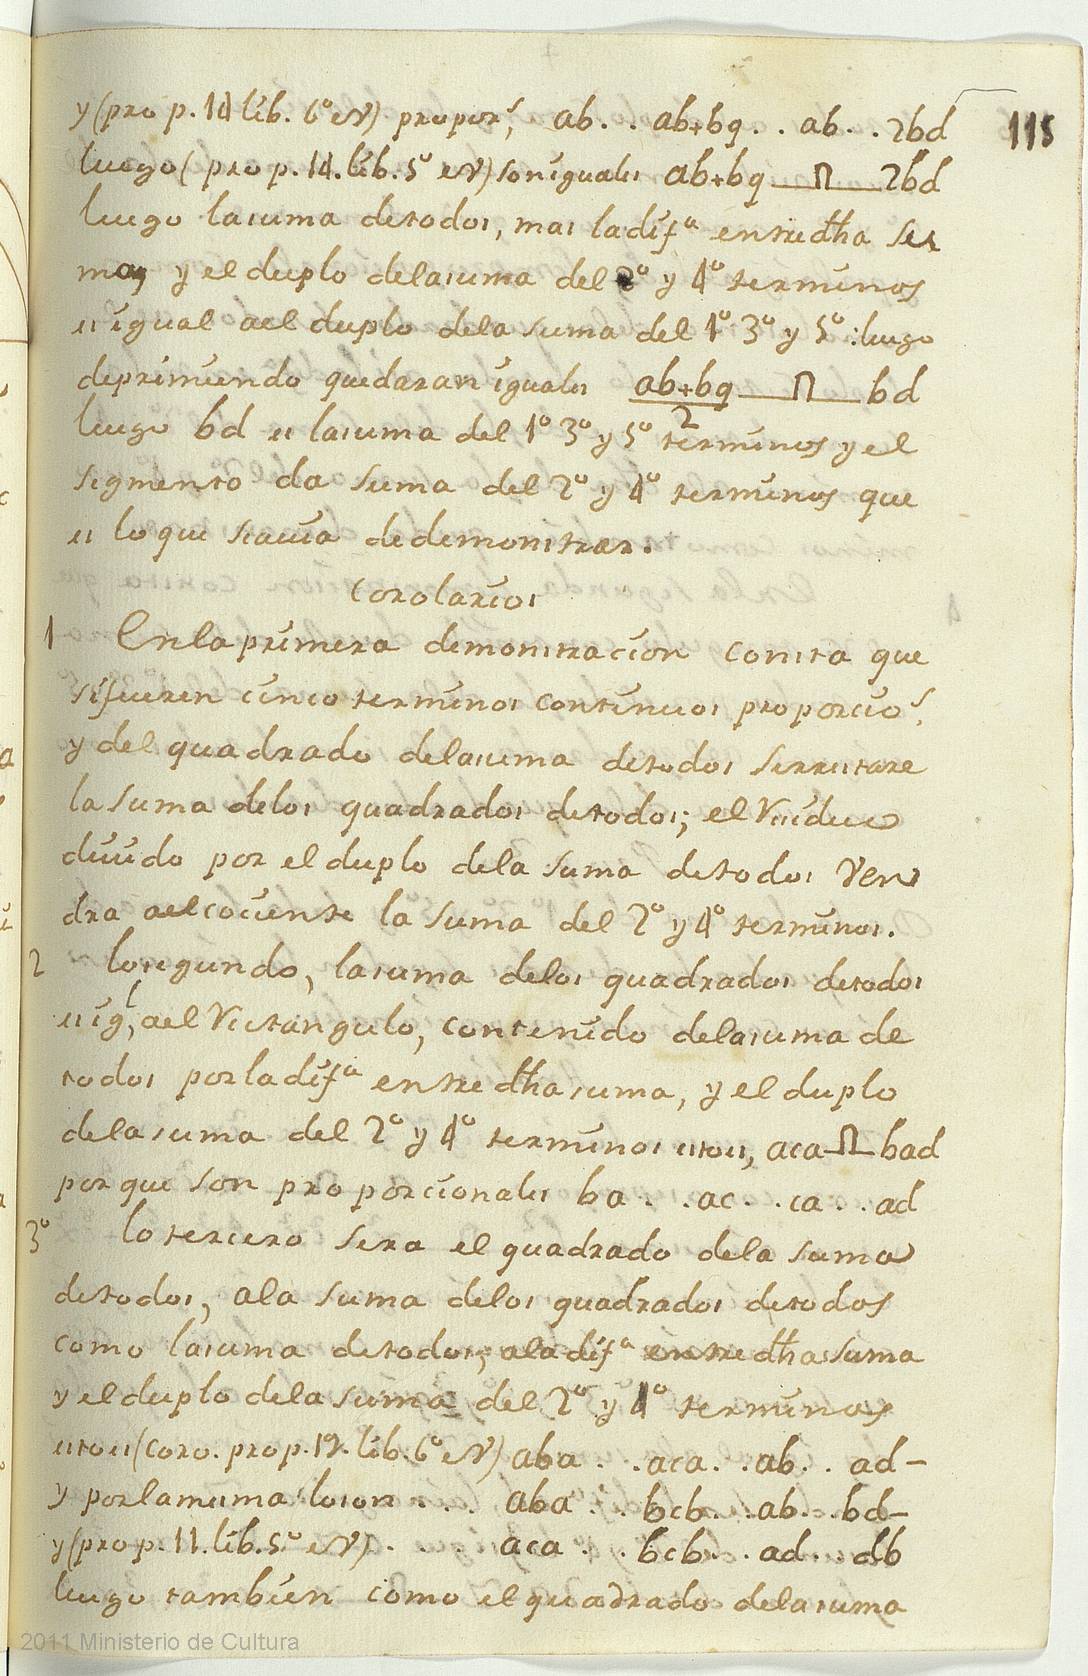 y (prop. 14 lib. 6º eu) propors, ab . . ab+bq . . ab . . 2bd 115
luego (prop. 14. lib. 5º eu) son iguales ab+bq — Π — 2bd
luego la suma de todos, mas la difª entre dha su
ma, y el duplo de la suma del 2º y 4º terminos
es igual ael duplo de la suma del 1º 3º y 5º : luego
deprimiendo quedaran iguales ab+bq — Π — bd
2
luego bd es la suma del 1º 3º y 5º terminos y el
segmento da suma del 2º y 4º terminos que
es lo que se avia de demonstrar.
Corolarios
1 En la primera demonstracion consta que
si fueren cinco terminos continuos proporcios,
y del quadrado de la suma de todos se restare
la suma de los quadrados de todos; el residuo
divido por el duplo de la suma de todos ven
dra ael cociente la suma del 2º y 4º terminos.
2 lo segundo, la suma de los quadrados de todos
es igl, ael rectangulo, contenido de la suma de
todos por la difª entre dha suma, y el duplo
de la suma del 2º y 4º terminos esto es, aca Π bad
porque son proporcionales ba . . ac . . ca . . ad
3º lo tercero sera el quadrado de la suma
de todos, a la suma de los quadrados de todos
como la suma de todos; a la difª entre dha suma
y el duplo de la suma del 2º y 4º terminos
esto es (coro. prop. 19. lib. 6º eu) aba . . aca . . ab . . ad —
y por la misma son . . . . aba . . bcb . . ab . . bd —
y (prop. 11. lib. 5º eu) . . . . aca . . bcb . . ad . . db
luego tambien como el quadrado de la suma
2011 Ministerio de Cultura